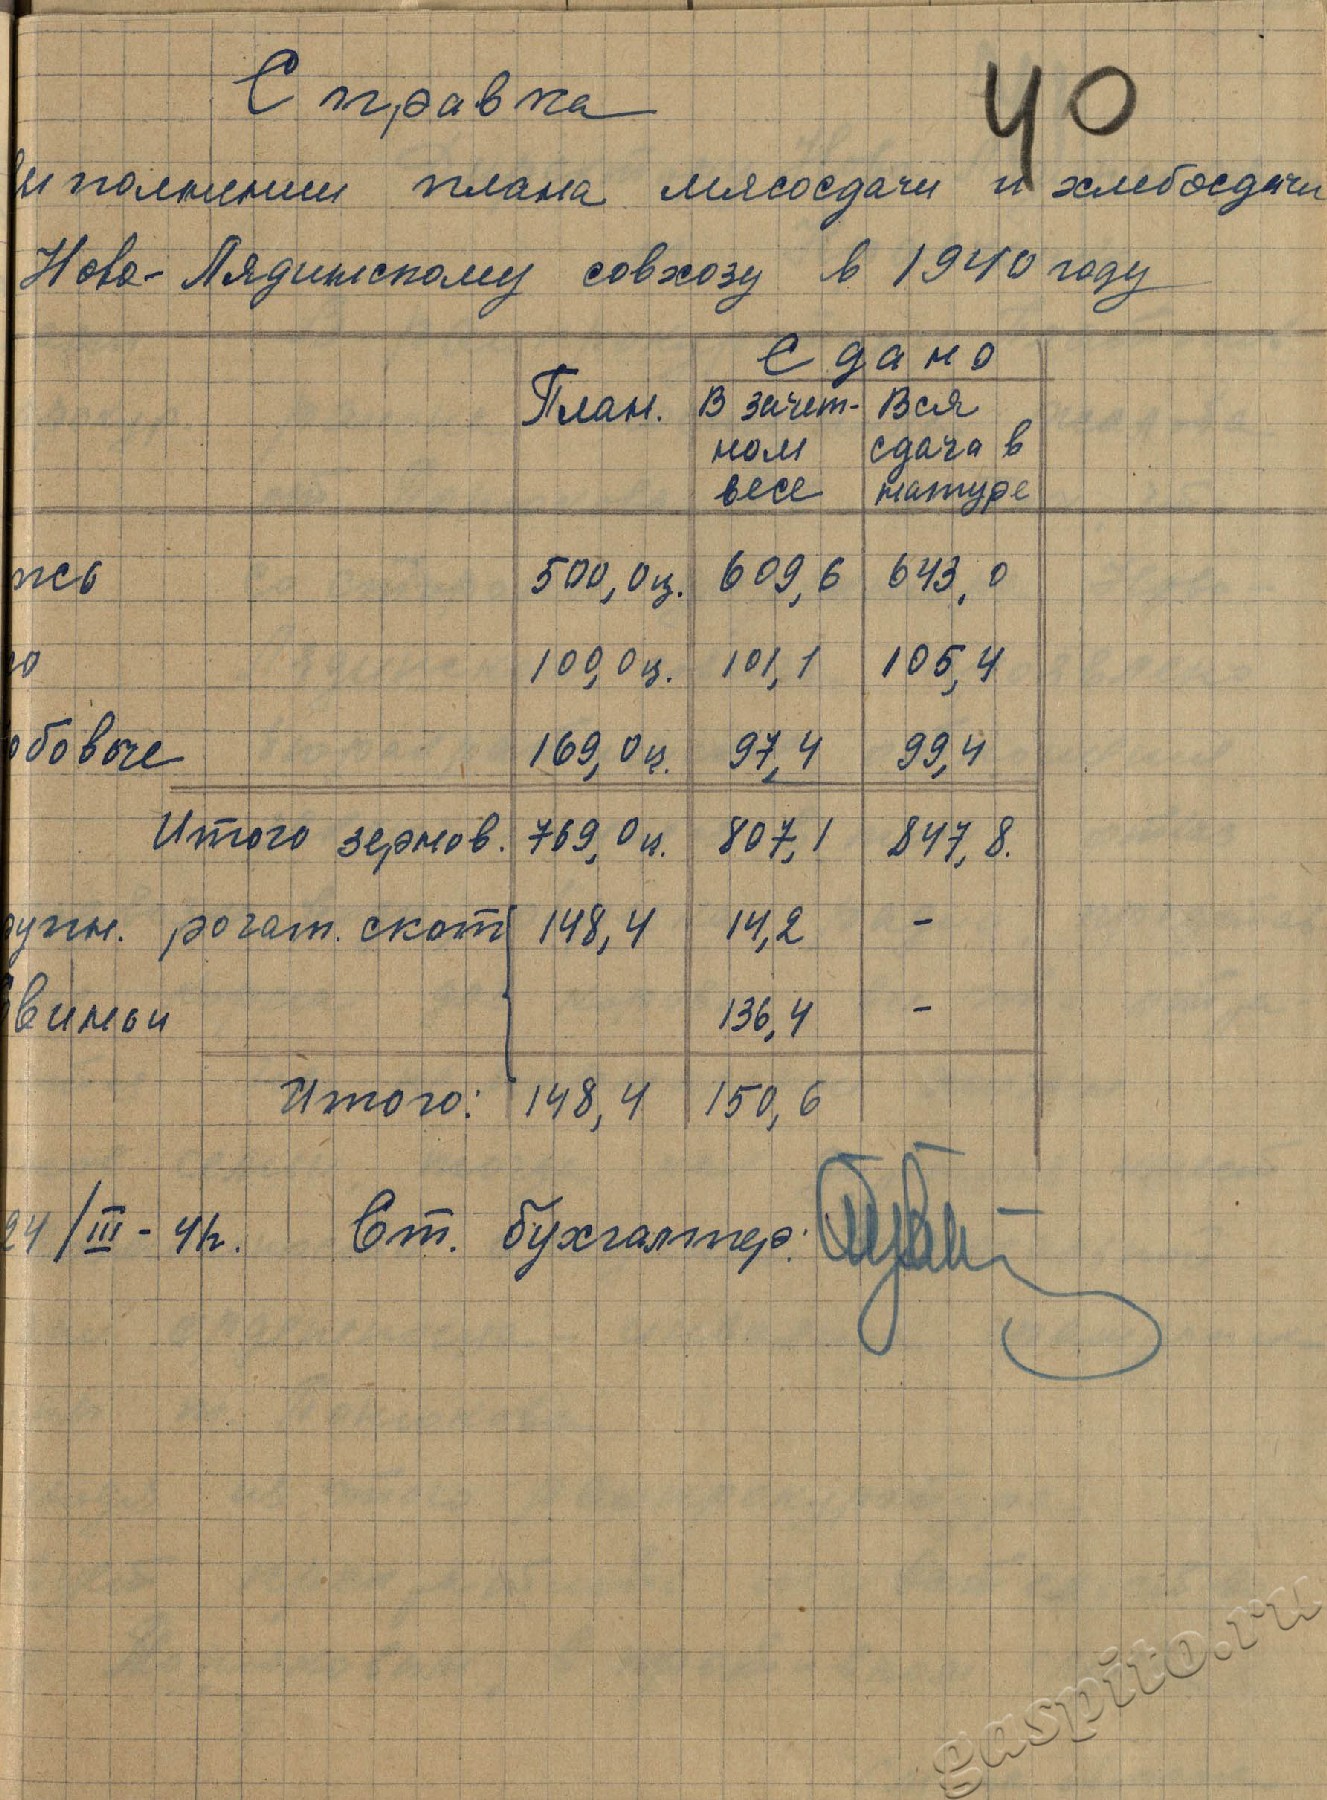 40
Справка
выполнении плана мясосдачи и хлебосдачи
Ново-Лядинскому совхозу в 1940 году
Сдано
План. В зачет- Вся
ном сдача в
весе натуре
жь 500,0ц. 609,6 643,0
о 100,0ц. 101,1 105,4
обовые 169,0ц. 97,4 99,4
Итого зернов. 769,0ц. 807,1 847,8.
рупн. рогат. скот 148,4 14,2 -
Свиньи 136,4 -
Итого: 148,4 150,6
24/III-41г. Ст. бухгалтер:
gaspito.ru